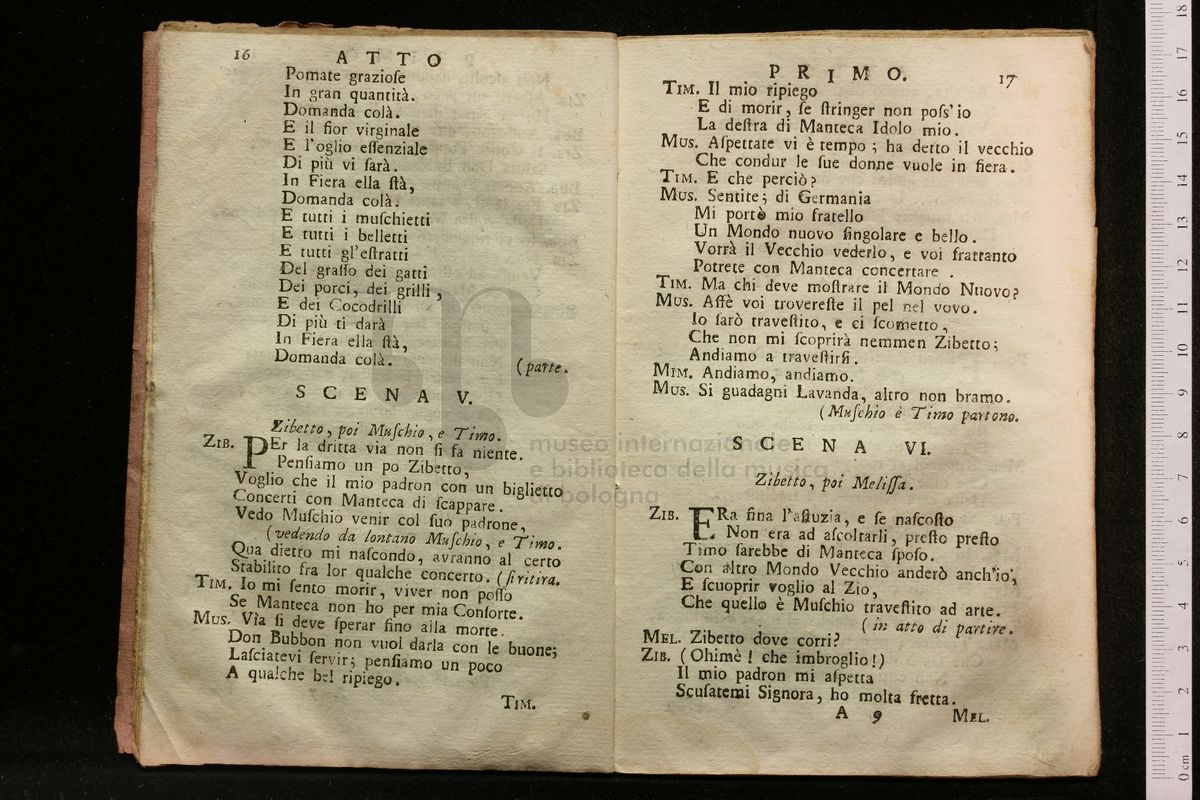 16 ATTO
Pomate grazioſe
In gran quantità.
Domanda colà.
E il fior virginale
E l'oglio eſſenziale
Di più vi ſarà.
In Fiera ella ſtà,
Domanda colà.
E tutti i muſchietti
E tutti i belletti
E tutti gl'eſtratti
Del graſſo dei gatti
Dei porci, dei grilli,
E dei Cocodrilli
Di più ti darà
In Fiera ella ſtà,
Domanda colà. (parte.
SCENA V.
Zibetto, poi Muſchio, e Timo.
ZIB. PEr la dritta via non ſi fa niente.
Penſiamo un po Zibetto,
Voglio che il mio padron con un biglietto
Concerti con Manteca di ſcappare.
Vedo Muſchio venir col ſuo padrone,
(vedendo da lontano Muſchio, e Timo.
Qua dietro mi naſcondo, avranno al certo
Stabilito fra lor qualche concerto. (ſi ritira.
TIM. Io mi ſento morir, viver non poſſo
Se Manteca non ho per mia Conſorte.
MUS. Via ſi deve ſperar fino alla morte.
Don Bubbon non vuol darla con le buone;
Laſciatevi ſervir; penſiamo un poco
A qualche bel ripiego.
TIM.
PRIMO. 17
TIM. Il mio ripiego
E di morir, ſe ſtringer non poſs'io
La deſtra di Manteca Idolo mio.
MUS. Aſpettate vi è tempo; ha detto il vecchio
Che condur le ſue donne vuole in fiera.
TIM. E che perciò?
MUS. Sentite; di Germania
Mi portò mio fratello
Un Mondo nuovo ſingolare e bello.
Vorrà il Vecchio vederlo, e voi frattanto
Potrete con Manteca concertare.
TIM. Ma chi deve moſtrare il Mondo Nuovo?
MUS. Affè voi trovereſte il pel nel vovo.
Io ſarò traveſtito, e ci ſcometto,
Che non mi ſcoprirà nemmen Zibetto;
Andiamo a traveſtirſi.
MIM. Andiamo, andiamo.
MUS. Si guadagni Lavanda, altro non bramo.
(Muſchio è Timo partono.
SCENA VI.
Zibetto, poi Meliſſa.
ZIB. ERa fina l'aſtuzia, e ſe naſcoſto
Non era ad aſcoltarli, preſto preſto
Timo ſarebbe di Manteca ſpoſo.
Con altro Mondo Vecchio anderò anch'io,
E ſcuoprir voglio al Zio,
Che quello è Muſchio traveſtito ad arte.
(in atto di partire.
MEL. Zibetto dove corri?
ZIB. (Ohimè! che imbroglio!)
Il mio padron mi aſpetta
Scuſatemi Signora, ho molta fretta.
A 9 MEL.
museo internazionale
e biblioteca della musica
di bologna
0 cm 1 2 3 4 5 6 7 8 9 10 11 12 13 14 15 16 17 18